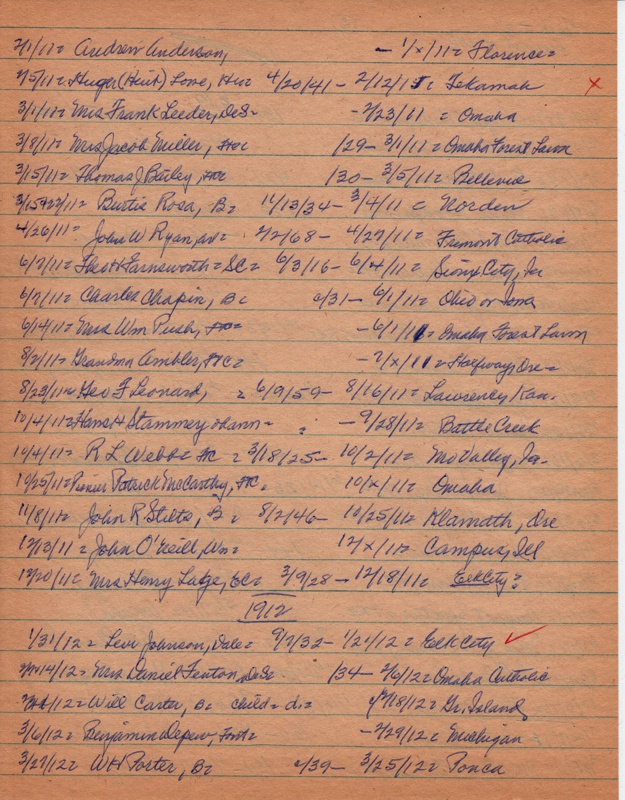 2/1/11= Andrew Anderson, - 1/x/11= Florence=
2/5/11= Huger (Heirt) Lowe, He= 4/20/41- 2/12/11= Tekamah x
3/1/11= Mrs Frank Leeder, DeS= - 2/23/11 = Omaha
3/8/11= Mrs Jacob Miller, /29- 3/1/11= Omaha Forest Lawn
3/15/11= Thomas J Bailey, /30- 3/5/11= Bellevue
Burtis Rosa, B= 11/13/34- 3/4/11 = Norden
4/26/11= John W Ryan, 2/2/68- 4/27/11= Fremont Catholic
6/7/11= Theo H Farnsworth = SC= 6/3/16- 6/4/11= Sioux City, Ia
6/7/11= Charles Chapin, B= c/31- 6/1/11= Ohio or Iowa
6/14/11= Mrs Wm Push, - 6/1/11= Omaha Forest Lawn
8/2/11= Grandma Ambler, FC= - 7/x/11= Halfway, Ore=
8/23/11= Geo F Leonard, = 6/9/59- 8/16/11= Lawrence, Kan.
10/4/11= Hans H Stammeyohann= - 9/28/11= Battle Creek
10/4/11= R L Webb= FC = 3/18/25- 10/2/11= Mo Valley, Ia.
10/25/11= Pioneer Patrick McCarthy, FC= 10/x/11= Omaha
11/8/11= John R Stilts, B= 8/2/46- 10/25/11= Klamath, Ore
12/13/11= John O'Neill, Wn= 12/x/11= Campus, Ill
12/20/11= Mrs Henry Latze, EC= 3/9/28- 12/18/11= Elk City=
1912
1/31/12= Levi Johnson, Dale= 9/7/32- 1/21/12= Elk City ✓
2/14/12= Mrs. Daniel Fenton, DeS= /34- 2/6/12= Omaha Catholic
Will Carter, B= child= d.= 2/18/12= Gr. Island
3/6/12= Benjamin Depew, Font= - 2/29/12= Michigan
3/27/12= WH Porter, B= c/39- 3/25/12= Ponca